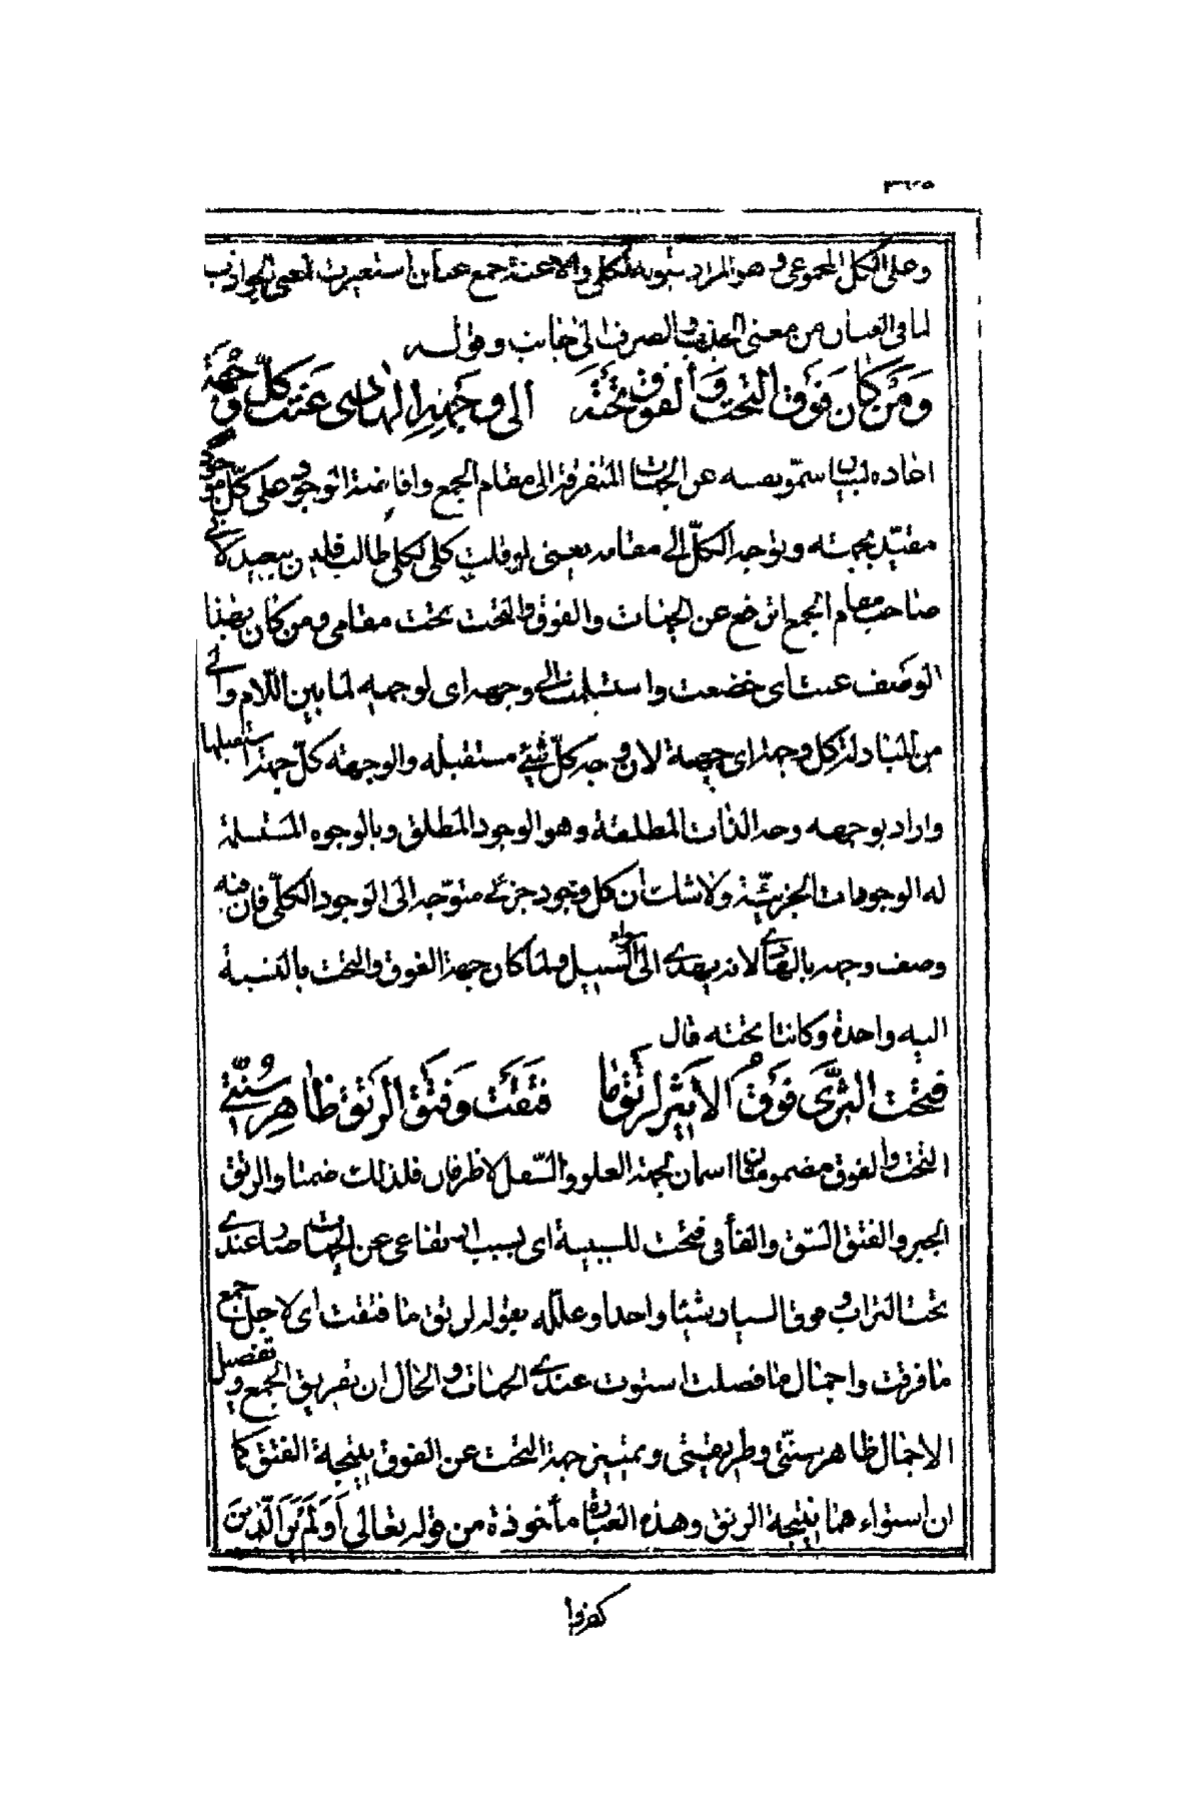 وعلى الكل المجموعي وهو المراد بثبوته للكلي والاعنة جمع عنان استعيرت لمعنى الجواذب
لما في العنان من معنى الجذب والصرف الى جانب وقوله
وَمَنْ كانَ فَوْقَ التحتِ وَالفوق تحتَه الى وجهِهِ الهادي عَنَت كلّ وُجْهة
افاده لبيان سمو نفسه عن الجهات المتفرقة الى مقام الجمع وافاضة الوجود على كلّ موجود
مقيّد بجهته وتوجه الكلّ الى مقامه يعنى لو قلت كلى لكلى طالب فليس ببعيد لاني
صاحب مقام الجمع اترفع عن الجهات والفوق والتحت تحت مقامى ومن كان بهذا
الوصف عنت اى خضعت واستسلمت الى وجهه اى لوجهه لما بين اللام والى
من المبادلة كل وجهة اى جهة لان وجه كلّ شئ مستقبله والوجهة كلّ جهة استقبلها
واراد بوجهه وجه الذات المطلقة وهو الوجود المطلق وبالوجوه المستسلمة
له الوجودات الجزئيّة ولا شك ان كل وجود جزئى متوجّه الى الوجود الكلّى فان منه
وصف وجهه بالهادى لانه يهدى الى سواء السبيل ولما كان جهة الفوق والتحت بالنسبة
اليه واحدة وكانتا تحته قال
فتحت الثَّرَى فوقَ الاثيرِ لرتق ما فتقتُ وَفتقُ الرتق ظاهر سُنّتي
التحت والفوق مضمومان اسمان لجهة العلو والسّفل لا ظرفان فلذلك ضمتا والرتق
الجبر والفتق الشق والفاء في فتحت للسببية اى بسبب ارتفاعى عن الجهات صار عندى
تحت التراب وفوق السماء شيئا واحدا وعلّله بقوله لرتق ما فتقت اى لاجل جمع
ما فرقت واجمال ما فصلت استوت عندى الجهات والحال ان تفريق الجمع وتفصيل
الاجمال ظاهر سنّتى وطريقتى وتميّز جهة التحت عن الفوق نتيجة الفتق كما
ان استواءهما نتيجة الرتق وهذه العبارة مأخوذة من قوله تعالى أَوَلَمْ يَرَ الَّذينَ
كفروا